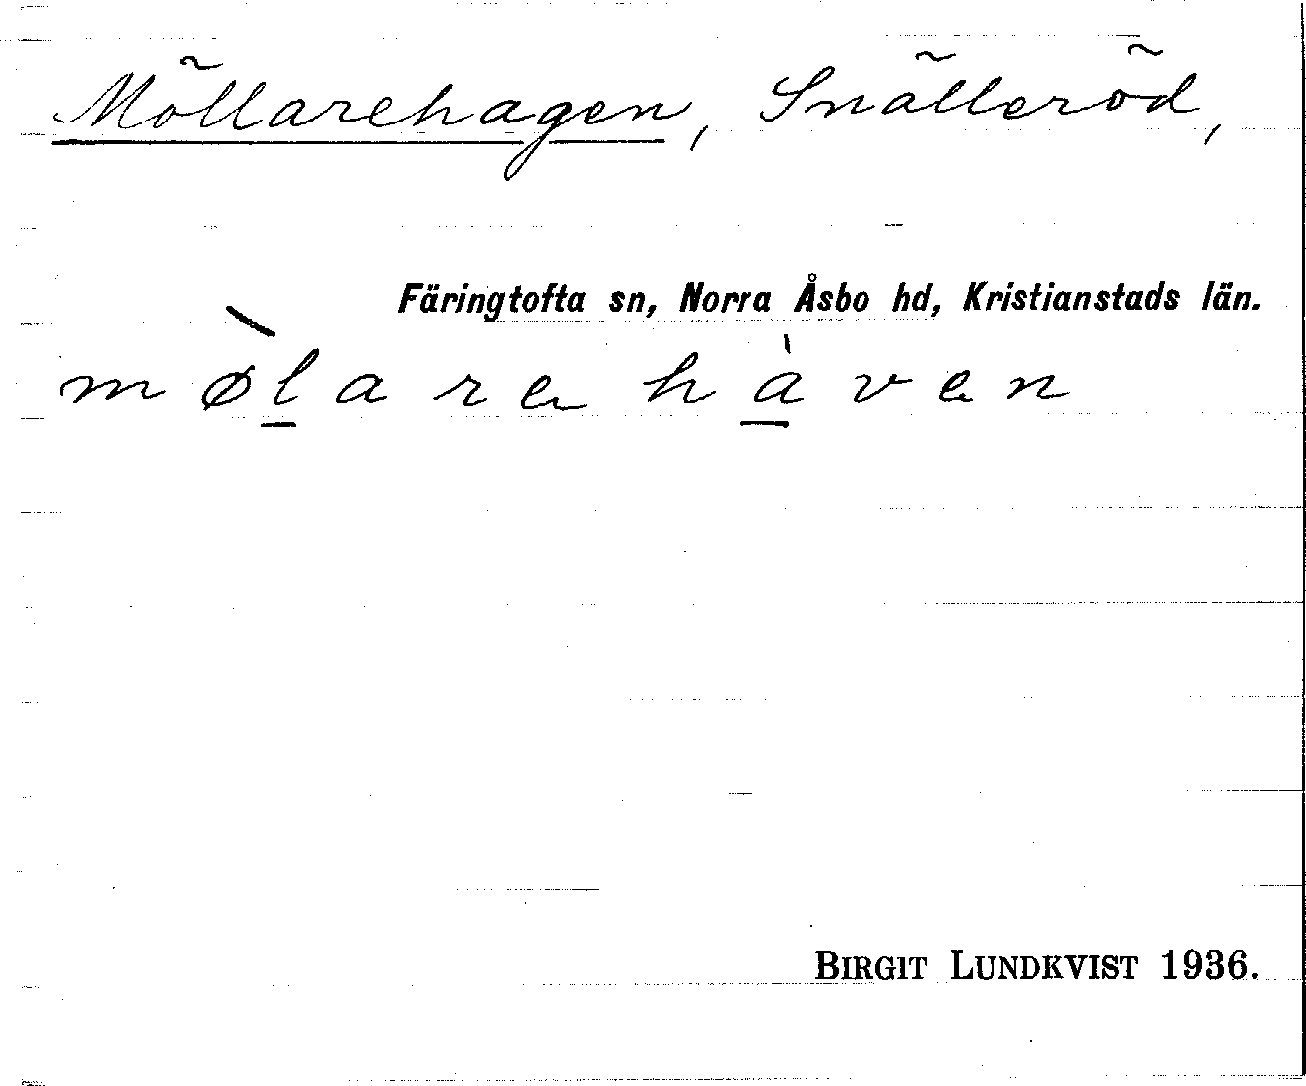 Möllarehagen, Snälleröd,
Färingtofta sn, Norra Åsbo hd, Kristianstads län.
mø̀l̲are hà̲ven
BIRGIT LUNDKVIST 1936.